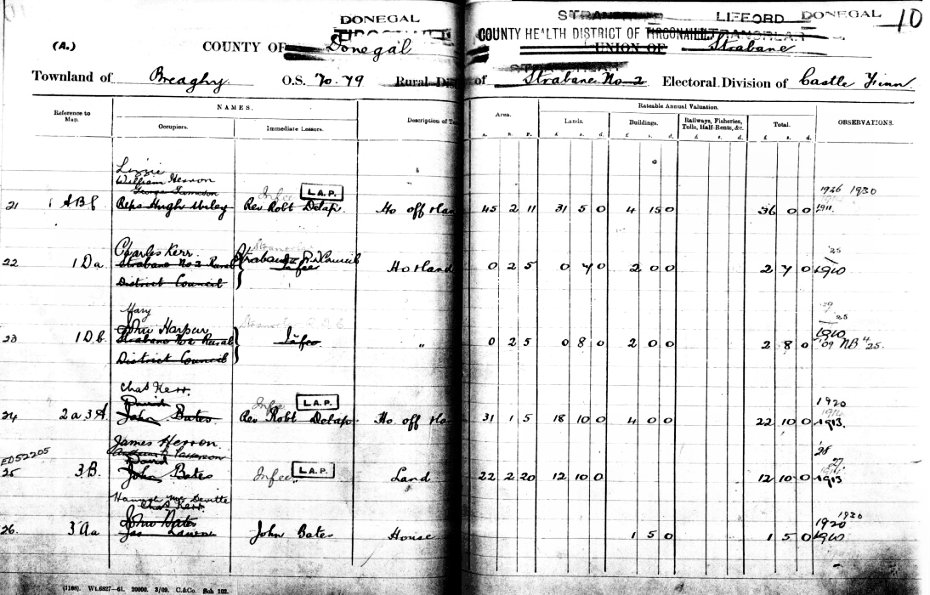 DONEGAL STRABANE LIFFORD DONEGAL 10
(A.) COUNTY OF Donegal COUNTY HEALTH DISTRICT OF TIRCONAILL
UNION OF Strabane
Townland of Breaghy O.S. 70.79 Rural Dis of Strabane No 2 Electoral Division of Castle Finn
Reference to Map. NAMES. Description of Te Area. Rateable Annual Valuation. OBSERVATIONS.
Occupiers. Immediate Lessors. Lands. Buildings. Railways, Fisheries, Tolls, Half-Rents, &c. Total.
a. r. p. £ s. d. £ s. d. £ s. d. £ s. d.
Lizzie
William Herron
George Jameson
21 1 A B Reps Hugh Infee L.A.P. Rev Robt Delap Ho off & lan 45 2 11 31 5 0 4 15 0 36 0 0 1926 1930 1911
Charles Kerr
22 1 Da Strabane No 2 Rural District Council Strabane R D Council Infee Ho & land 0 2 5 0 7 0 2 0 0 2 7 0 '25 1910
Mary
John Harpur
23 1 Db Strabane No 2 Rural District Council Infee " 0 2 5 0 8 0 2 0 0 2 8 0 '25 1910 '09 NB '25
Chas Kerr
David
24 2a 3A John Bates Infee L.A.P. Rev Robt Delap Ho off & lan 31 1 5 18 10 0 4 0 0 22 10 0 1920 1913
James Herron
David
ED52205
25 3B John Bates Infee L.A.P. Land 22 2 20 12 10 0 12 10 0 1913
Hannah Mc Devitte
Chas Kerr
John Bates
26 3Aa Jas John Bates House 1 5 0 1 5 0 1926 1920 1910
(1186) Wt.6827—61. 20000. 3/09. C.&Co. Sch 103.